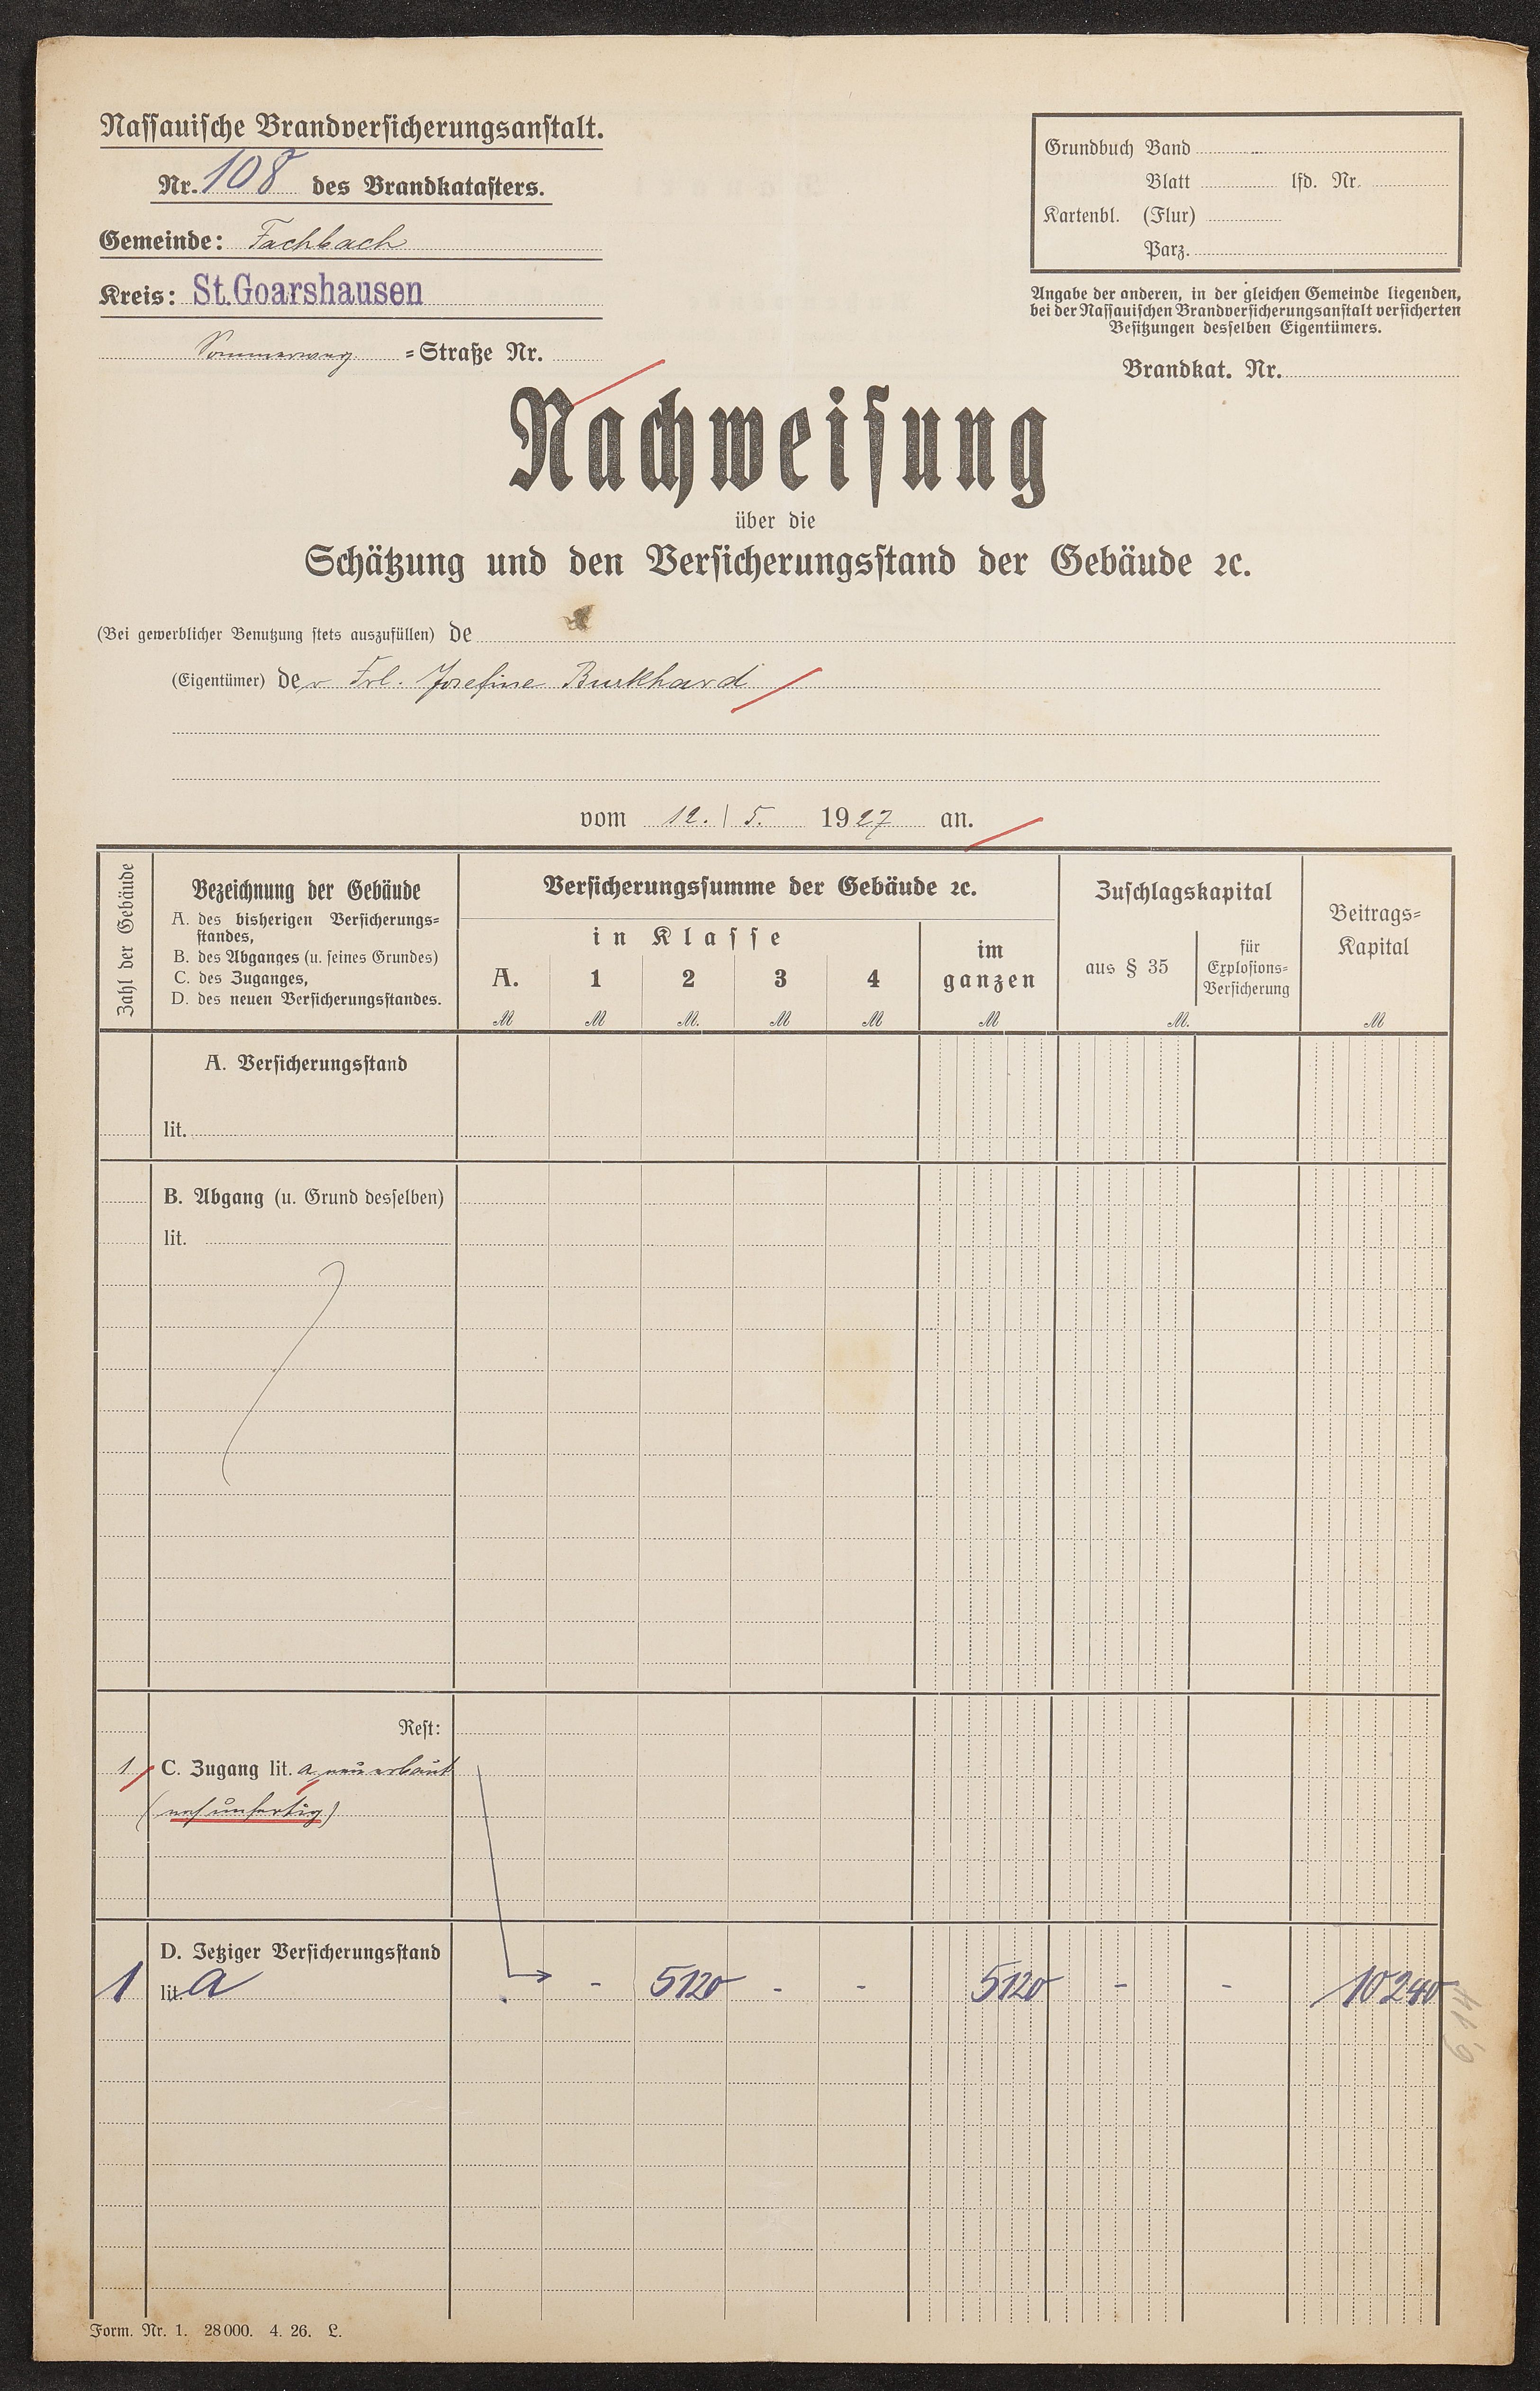 Nassauische Brandversicherungsanstalt.
Nr. 108 des Brandkatasters.
Gemeinde: Fachbach
Kreis: St. Goarshausen
Sommerweg =Straße Nr.
Grundbuch Band
Blatt lfd. Nr.
Kartenbl. (Flur)
Parz.
Angabe der anderen, in der gleichen Gemeinde liegenden,
bei der Nassauischen Brandversicherungsanstalt versicherten
Besitzungen desselben Eigentümers.
Brandkat. Nr.
Nachweisung
über die
Schätzung und den Versicherungsstand der Gebäude ꝛc.
(Bei gewerblicher Benutzung stets auszufüllen) de
(Eigentümer) der Frl. Josefine Burkhard
vom 12. / 5. 1927 an.
Zahl der Gebäude
Bezeichnung der Gebäude
A. des bisherigen Versicherungs=
standes,
B. des Abganges (u. seines Grundes)
C. des Zuganges,
D. des neuen Versicherungsstandes.
Versicherungssumme der Gebäude ꝛc.
in Klasse
A. 1 2 3 4
im
ganzen
M M M. M M M
Zuschlagskapital
aus § 35
für
Explosions=
Versicherung
M.
Beitrags=
Kapital
M
A. Versicherungsstand
lit.
B. Abgang (u. Grund desselben)
lit.
Rest:
1 C. Zugang lit. a neu erbaut
(noch unfertig)
D. Jetziger Versicherungsstand
1 lit. a - 5120 - - 5120 - - 10240
Form. Nr. 1. 28000. 4. 26. L.